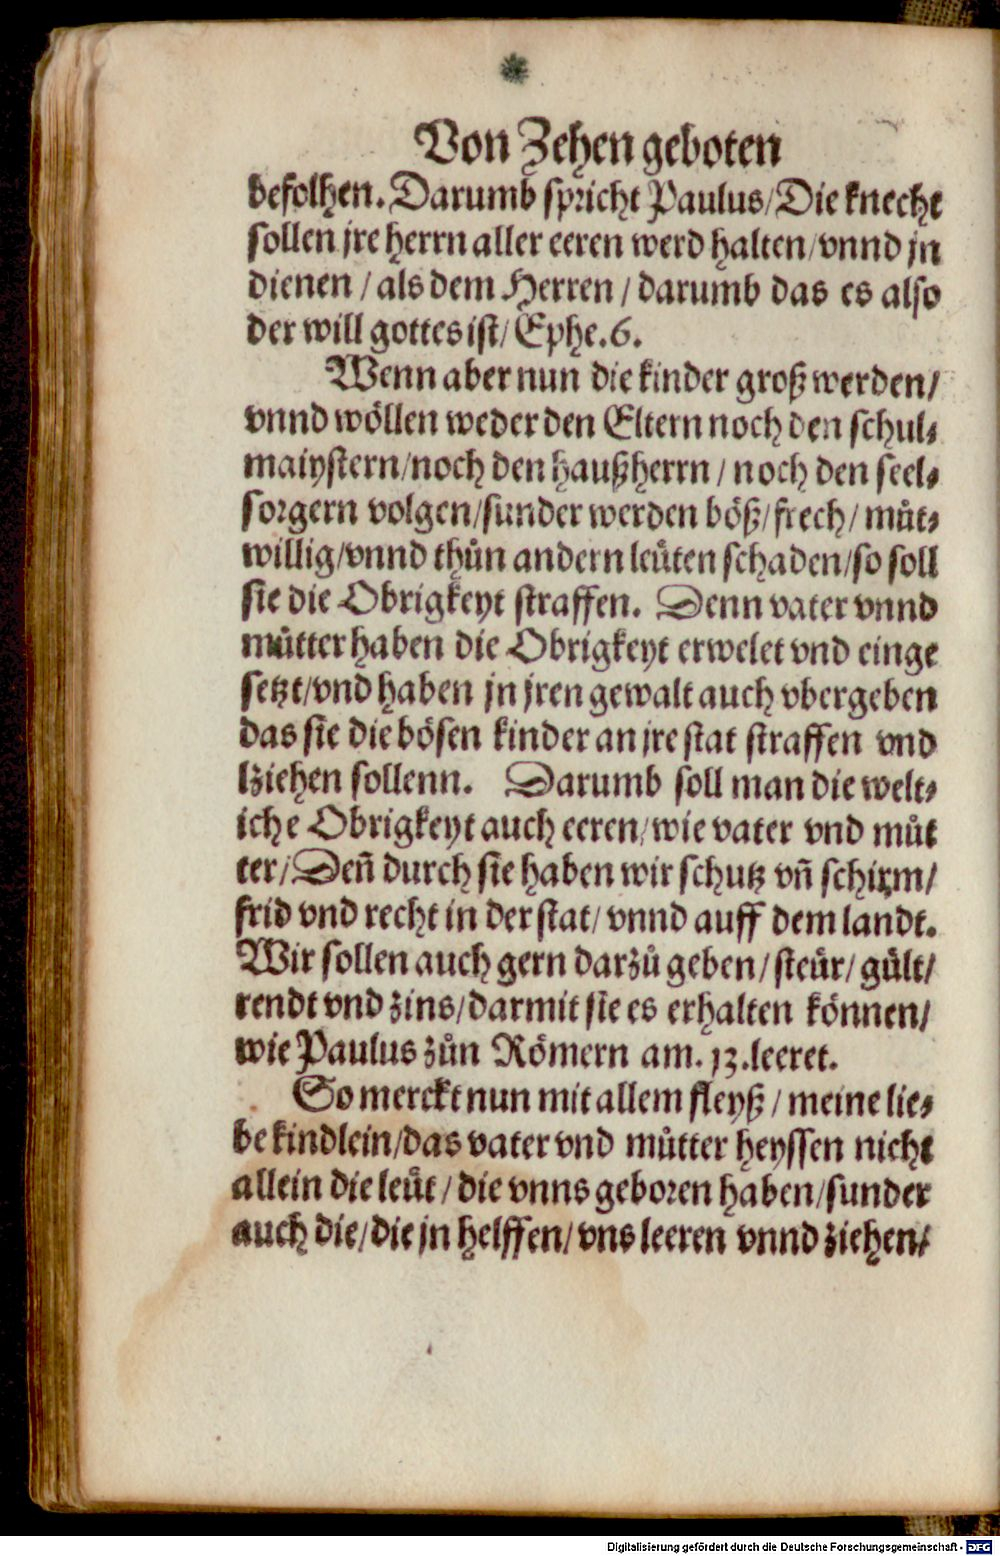 Von Zehen geboten
befolhen. Darumb spricht Paulus/Die knecht
sollen jre herrn aller eeren werd halten/vnnd jn
dienen / als dem Herren / darumb das es also
der will gottes ist/ Ephe.6.
Wenn aber nun die kinder groß werden/
vnnd wöllen weder den Eltern noch den schul⸗
maiystern/noch den haußherrn / noch den seel⸗
sorgern volgen/sunder werden böß/frech/ můt⸗
willig/vnnd thůn andern leüten schaden/so soll
sie die Obrigkeyt straffen. Denn vater vnnd
můtter haben die Obrigkeyt erwelet vnd einge
setzt/vnd haben jn jren gewalt auch vbergeben
das sie die bösen kinder an jre stat straffen vnd
lziehen sollenn. Darumb soll man die welt⸗
iche Obrigkeyt auch eeren/wie vater vnd můt
ter/Deñ durch sie haben wir schutz vñ schirm/
frid vnd recht in der stat/ vnnd auff dem landt.
Wir sollen auch gern darzů geben/ steür/ gült/
rendt vnd zins/darmit sie es erhalten können/
wie Paulus zůn Römern am. 13.leeret.
So merckt nun mit allem fleyß / meine lie⸗
be kindlein/das vater vnd můtter heyssen nicht
allein die leüt / die vnns geboren haben/sunder
auch die/die jn helffen/ vns leeren vnnd ziehen/
Digitalisierung gefördert durch die Deutsche Forschungsgemeinschaft - DFG